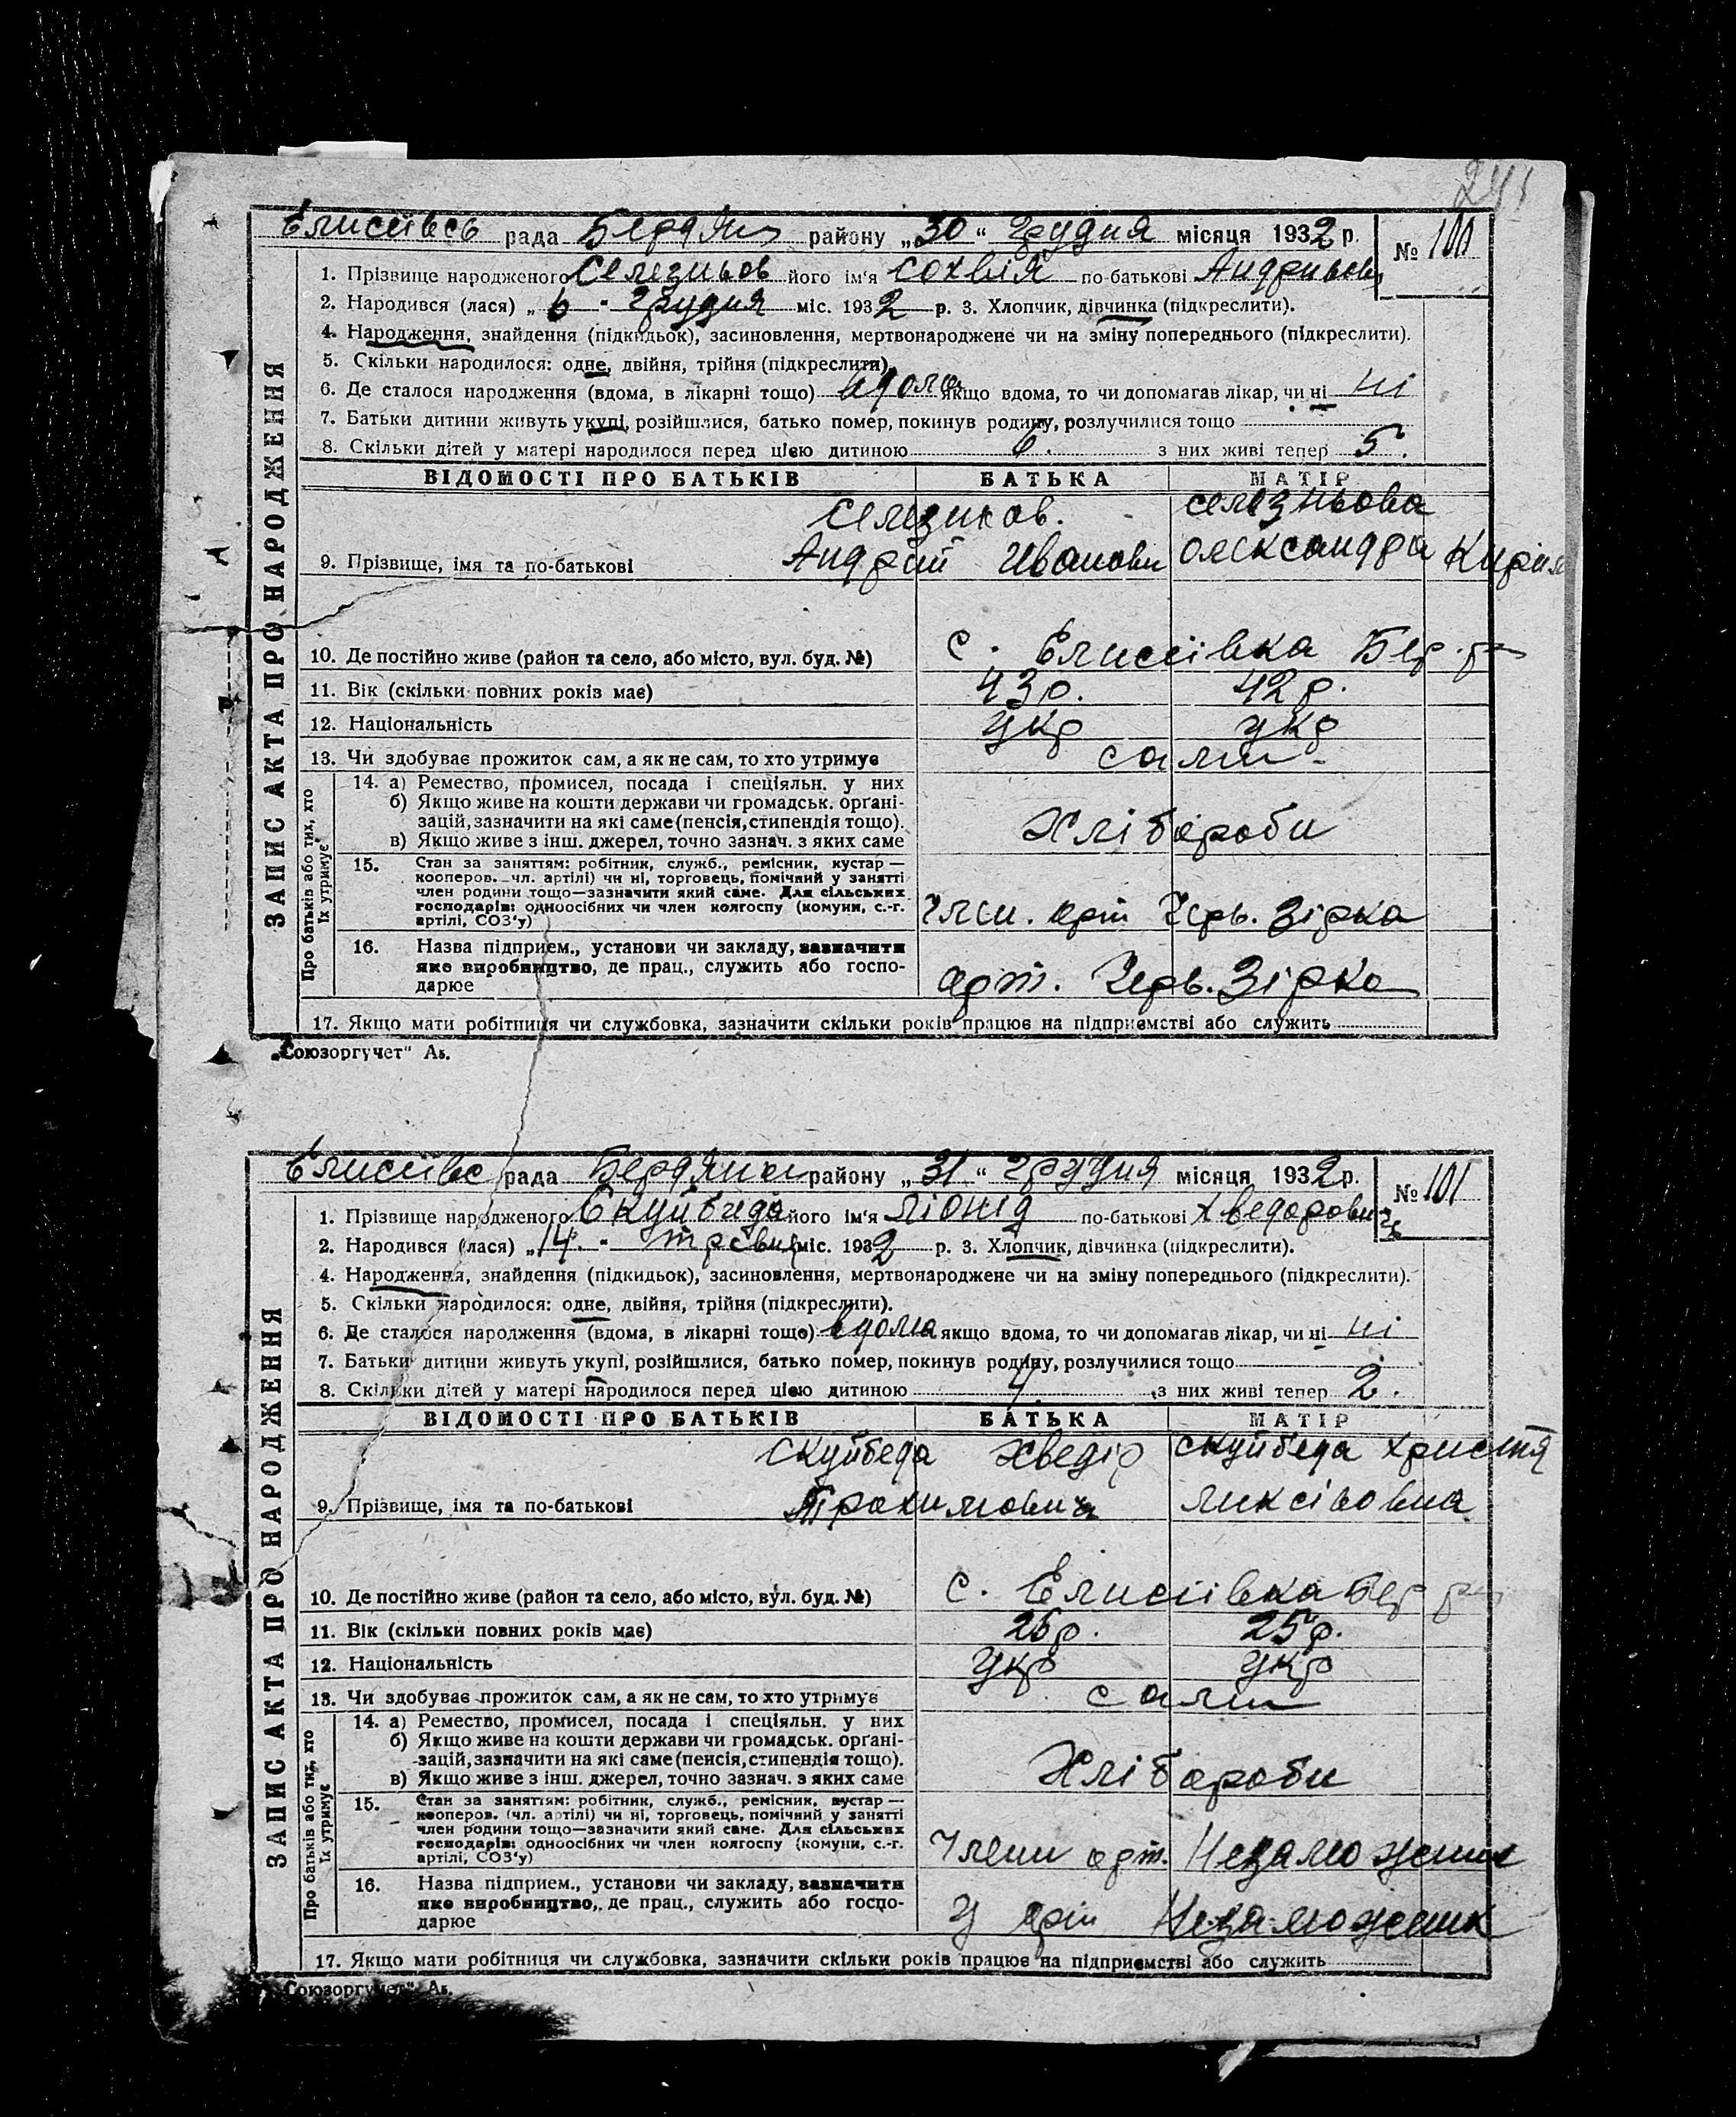 Єлисеївсь рада Бердян району „30“ грудня місяця 1932 р. № 100
1. Прізвище народженого Селезньов його ім'я Сохвія по-батькові Андрильовн
2. Народився (лася) „ 6 - грудня міс. 1932 р. 3. Хлопчик, дівчинка (підкреслити).
4. Народження, знайдення (підкидьок), засиновлення, мертвонароджене чи на зміну попереднього (підкреслити).
5. Скільки народилося: одне, двійня, трійня (підкреслити).
6. Де сталося народження (вдома, в лікарні тощо) вдома якщо вдома, то чи допомагав лікар, чи ні ні
7. Батьки дитини живуть укупі, розійшлися, батько помер, покинув родину, розлучилися тощо
8. Скільки дітей у матері народилося перед цією дитиною 6. з них живі тепер 5.
ВІДОМОСТІ ПРО БАТЬКІВ БАТЬКА МАТІР
Селезньов. Селезньова
9. Прізвище, імя та по-батькові Андрий Иванович Олександра Кирил
10. Де постійно живе (район та село, або місто, вул. буд. №) с. Елисеївка Бер. р-н
11. Вік (скільки повних років має) 43 р. 42 р.
12. Національність укр укр
13. Чи здобуває прожиток сам, а як не сам, то хто утримує сами
14. а) Ремество, промисел, посада і спеціяльн. у них
б) Якщо живе на кошти держави чи громадськ. орґані-
зацій, зазначити на які саме (пенсія, стипендія тощо).
в) Якщо живе з інш. джерел, точно зазнач. з яких саме
Хлібороби
15. Стан за заняттям: робітник, служб., ремісник, кустар —
кооперов. чл. артілі) чи ні, торговець, помічний у занятті
член родини тощо—зазначити який саме. Для сільських
господарів: одноосібних чи член колгоспу (комуни, с.-г.
артілі, СОЗ'у)
Член. арт Черв. Зірка
16. Назва підприєм., установи чи закладу, зазначити
яке виробництво, де прац., служить або госпо-
дарює
арт. Черв. Зірка
17. Якщо мати робітниця чи службовка, зазначити скільки років працює на підприємстві або служить
ЗАПИС АКТА ПРО НАРОДЖЕННЯ
Про батьків або тих, хто
їх утримує
„Союзоргучет“ Ав.
Єлисеївс рада Бердянск району „31“ грудня місяця 1932 р. № 101
1. Прізвище народженого Скуйбеда його ім'я Ліонід по-батькові Хведорович
2. Народився (лася) „14. - травня міс. 1932 р. 3. Хлопчик, дівчинка (підкреслити).
4. Народження, знайдення (підкидьок), засиновлення, мертвонароджене чи на зміну попереднього (підкреслити).
5. Скільки народилося: одне, двійня, трійня (підкреслити).
6. Де сталося народження (вдома, в лікарні тощо) вдома якщо вдома, то чи допомагав лікар, чи ні ні
7. Батьки дитини живуть укупі, розійшлися, батько помер, покинув родину, розлучилися тощо
8. Скільки дітей у матері народилося перед цією дитиною з них живі тепер 2.
ВІДОМОСТІ ПРО БАТЬКІВ БАТЬКА МАТІР
Скуйбеда Хведір Скуйбеда Христя
9. Прізвище, імя та по-батькові Трохимович ликсіовна
10. Де постійно живе (район та село, або місто, вул. буд. №) с. Елисеївка Бер р-н
11. Вік (скільки повних років має) 26 р. 25 р.
12. Національність укр укр
13. Чи здобуває прожиток сам, а як не сам, то хто утримує сами
14. а) Ремество, промисел, посада і спеціяльн. у них
б) Якщо живе на кошти держави чи громадськ. орґані-
зацій, зазначити на які саме (пенсія, стипендія тощо).
в) Якщо живе з інш. джерел, точно зазнач. з яких саме
Хлібороби
15. Стан за заняттям: робітник, служб., ремісник, кустар —
кооперов. (чл. артілі) чи ні, торговець, помічний у занятті
член родини тощо—зазначити який саме. Для сільських
господарів: одноосібних чи член колгоспу (комуни, с.-г.
артілі, СОЗ'у)
Члени арт. Незаможник
16. Назва підприєм., установи чи закладу, зазначити
яке виробництво, де прац., служить або госпо-
дарює
У арт Незаможник
17. Якщо мати робітниця чи службовка, зазначити скільки років працює на підприємстві або служить
ЗАПИС АКТА ПРО НАРОДЖЕННЯ
Про батьків або тих, хто
їх утримує
Союзоргучет“ Ав.